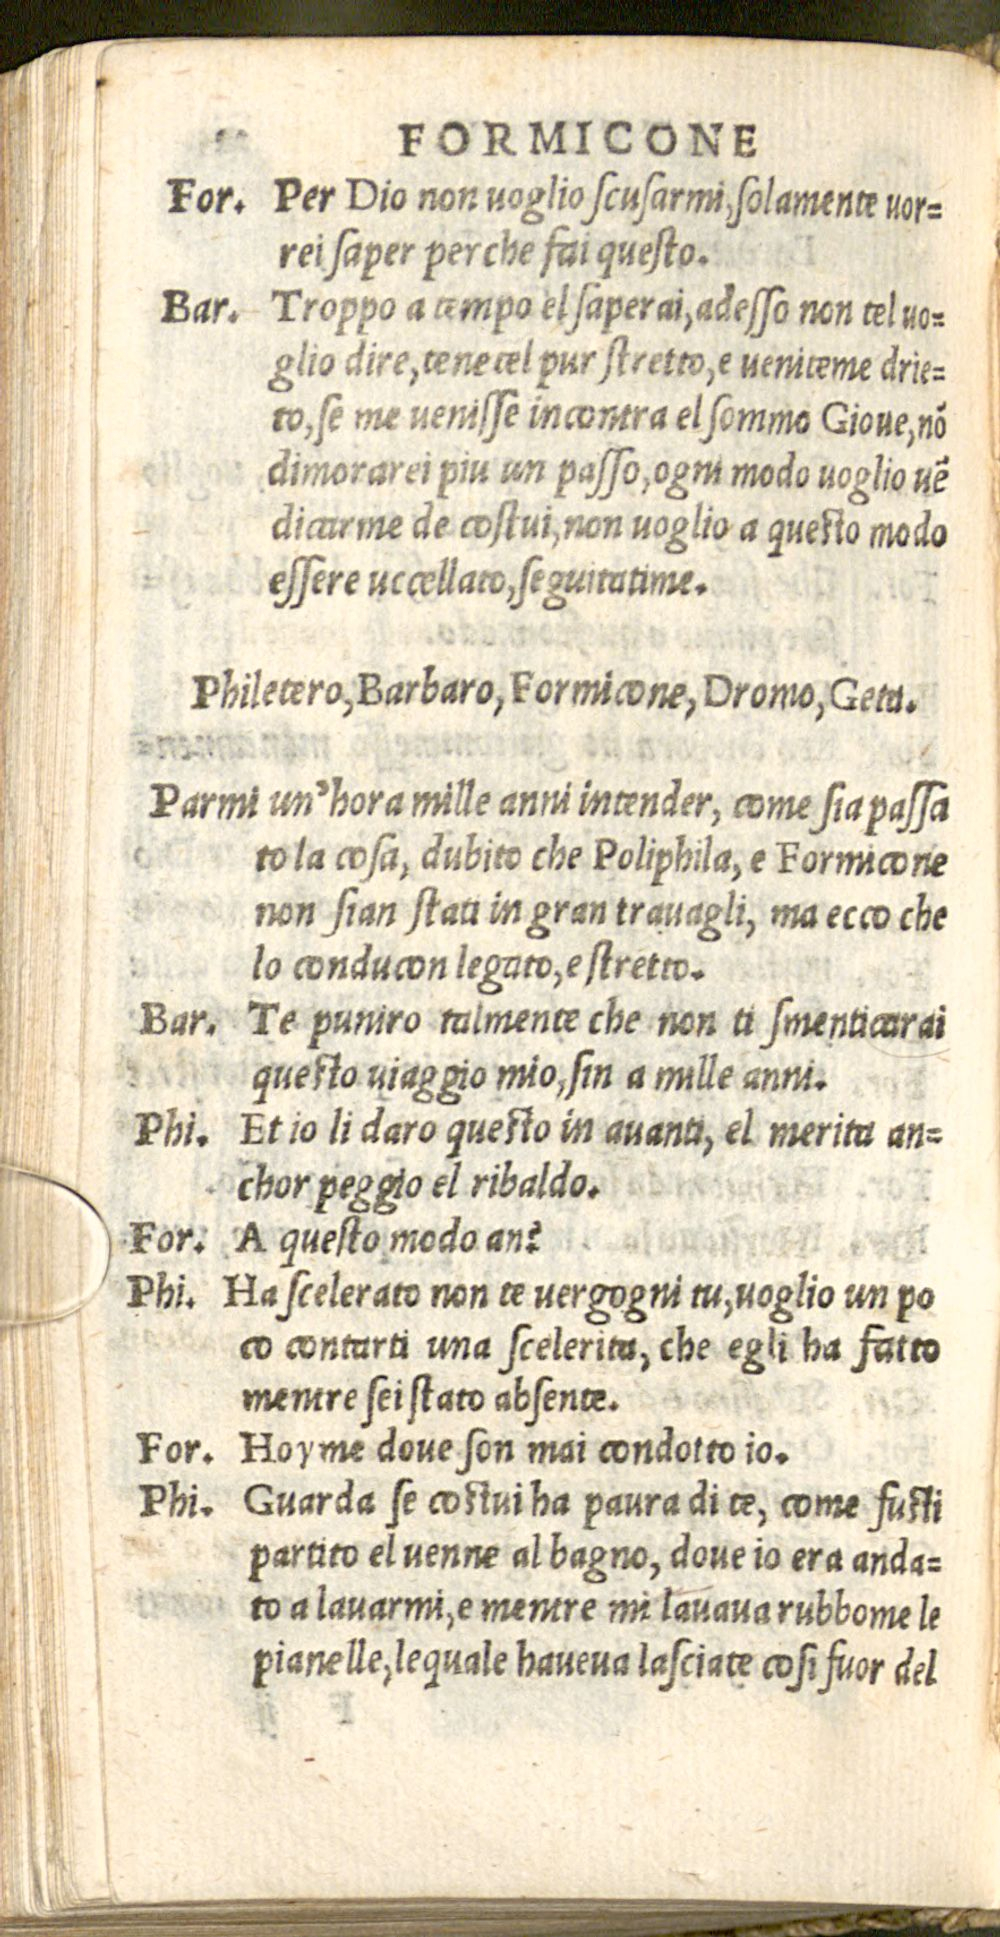 FORMICONE
For. Per Dio non uoglio ſcuſarmi,ſolamente uor=
rei ſaper perche fai queſto.
Bar. Troppo a tempo el ſaperai,adeſſo non tel uo=
glio dire,tenetel pur ſtretto,e ueniteme drie=
to,ſe me ueniſſe incontra el ſommo Gioue,nõ
dimorarei piu un paſſo,ogni modo uoglio uẽ
dicarme de coſtui,non uoglio a queſto modo
eſſere uccellato,ſeguitatime.
Philetero,Barbaro,Formicone,Dromo,Geta.
Parmi un'hora mille anni intender, come ſia paſſa
to la coſa, dubito che Poliphila, e Formicone
non ſian ſtati in gran trauagli, ma ecco che
lo conducon legato,e ſtretto.
Bar. Te puniro talmente che non ti ſmenticarai
queſto uiaggio mio,ſin a mille anni.
Phi. Et io li daro queſto in auanti, el merita an=
chor peggio el ribaldo.
For. A queſto modo an?
Phi. Ha ſcelerato non te uergogni tu,uoglio un po
co contarti una ſcelerita, che egli ha fatto
mentre ſei ſtato abſente.
For. Hoyme doue ſon mai condotto io.
Phi. Guarda ſe coſtui ha paura di te, come fuſti
partito el uenne al bagno, doue io era anda=
to a lauarmi,e mentre mi lauaua rubbome le
pianelle,lequale haueua laſciate coſi fuor del